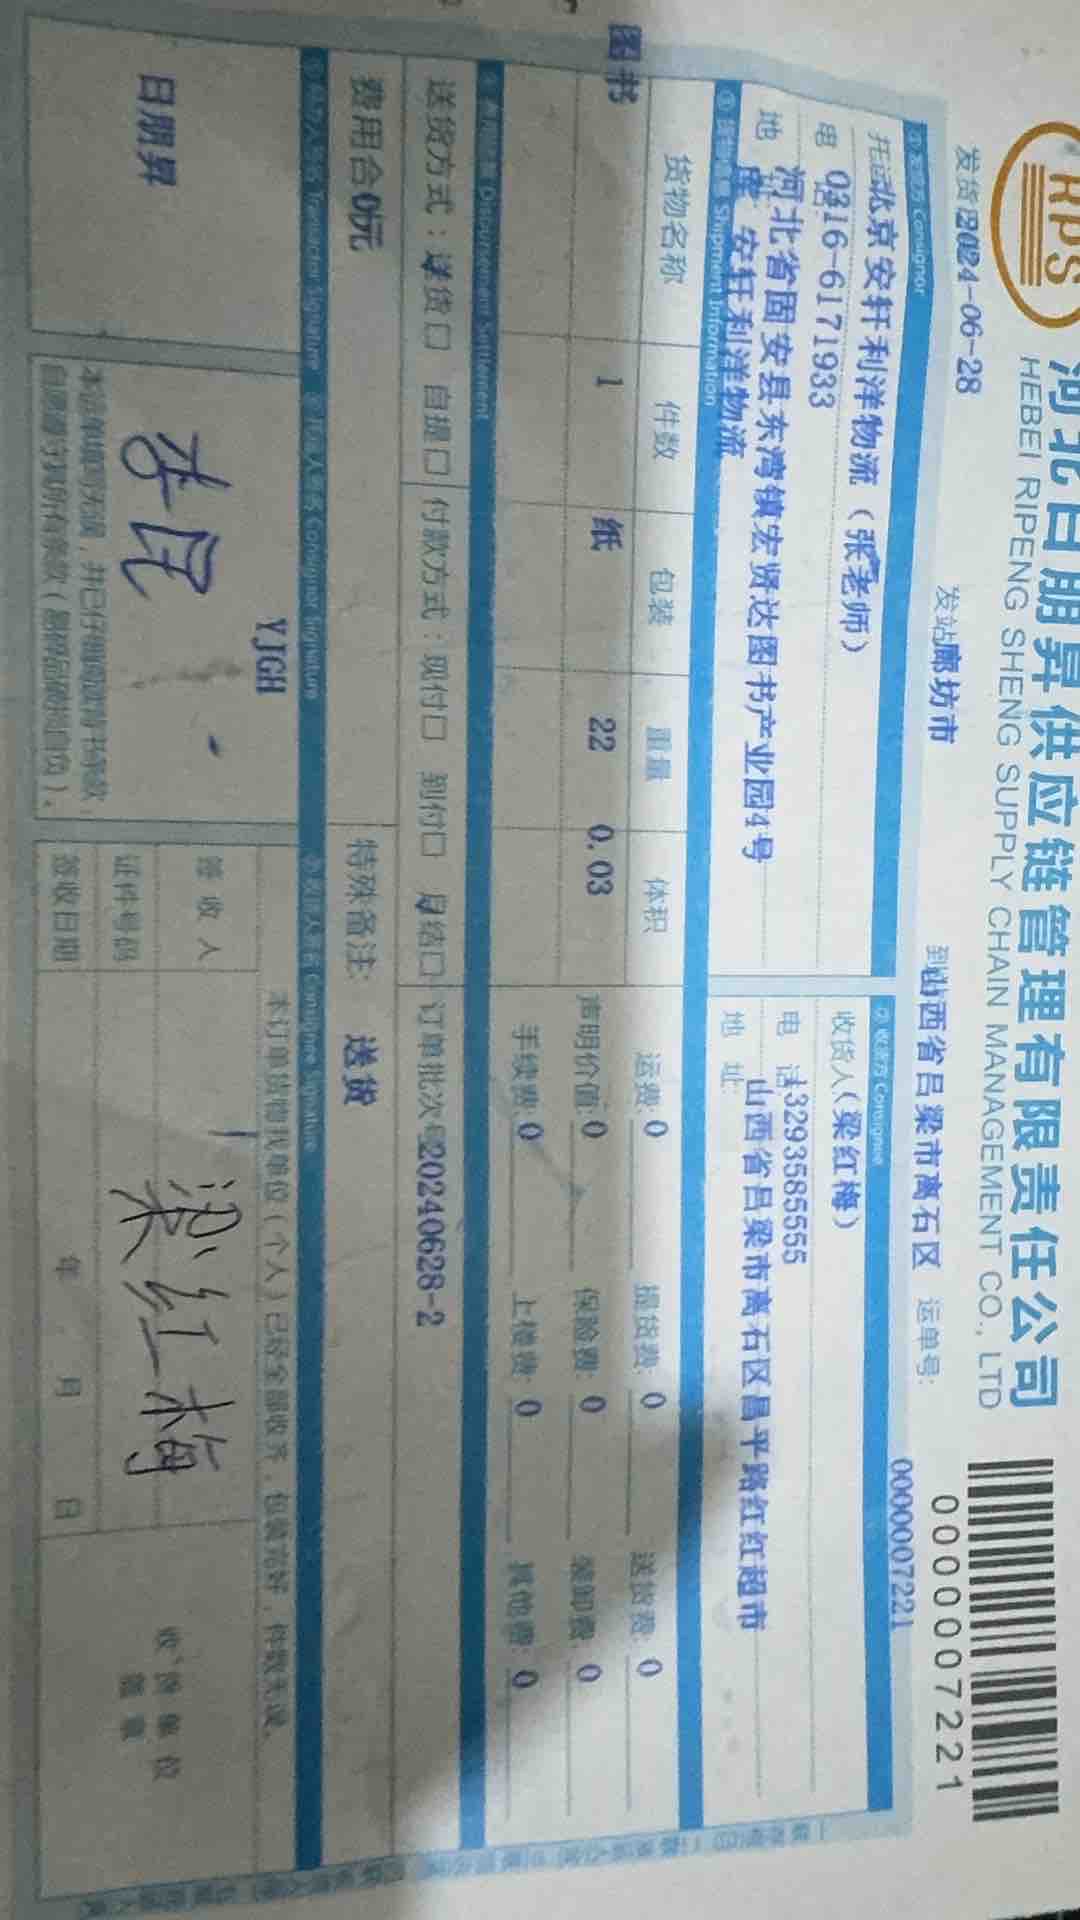 RPS
河北日朋昇供应链管理有限责任公司
HEBEI RIPENG SHENG SUPPLY CHAIN MANAGEMENT CO., LTD
0000007221
发货 2024-06-28 发站 廊坊市 到站 山西省吕梁市离石区 运单号: 0000007221
① 发货方 Consignor
托运 北京安轩利洋物流（张老师）
电话 0316-6171933
地 河北省固安县东湾镇宏贤达图书产业园4号
库 安轩利洋物流
② 收货方 Consignee
收货人（梁红梅）
电话 13293585555
地 址: 山西省吕梁市离石区昌平路红红超市
Shipment Information
货物名称 件数 包装 重量 体积
图书 1 纸 22 0.03
运费: 0 提货费: 0 送货费: 0
声明价值: 0 保险费: 0 装卸费: 0
手续费: 0 上楼费: 0 其他费: 0
Disbursement Settlement
送货方式：送货口 自提口 付款方式：现付口 到付口 月结口 订单批次号 20240628-2
费用合 0元 特殊备注: 送货
Transactor Signature
日朋昇
Consignor Signature
YJGH
本清单填写无误，并已仔细阅读背书条款，
自愿遵守其所有条款（易碎品破损自负）。
Consignee Signature
本订单货物我单位（个人）已经全部收齐，包装完好，件数无误。
签 收 人 梁红梅
证件号码
签收日期 年 月 日
收货单位
盖章